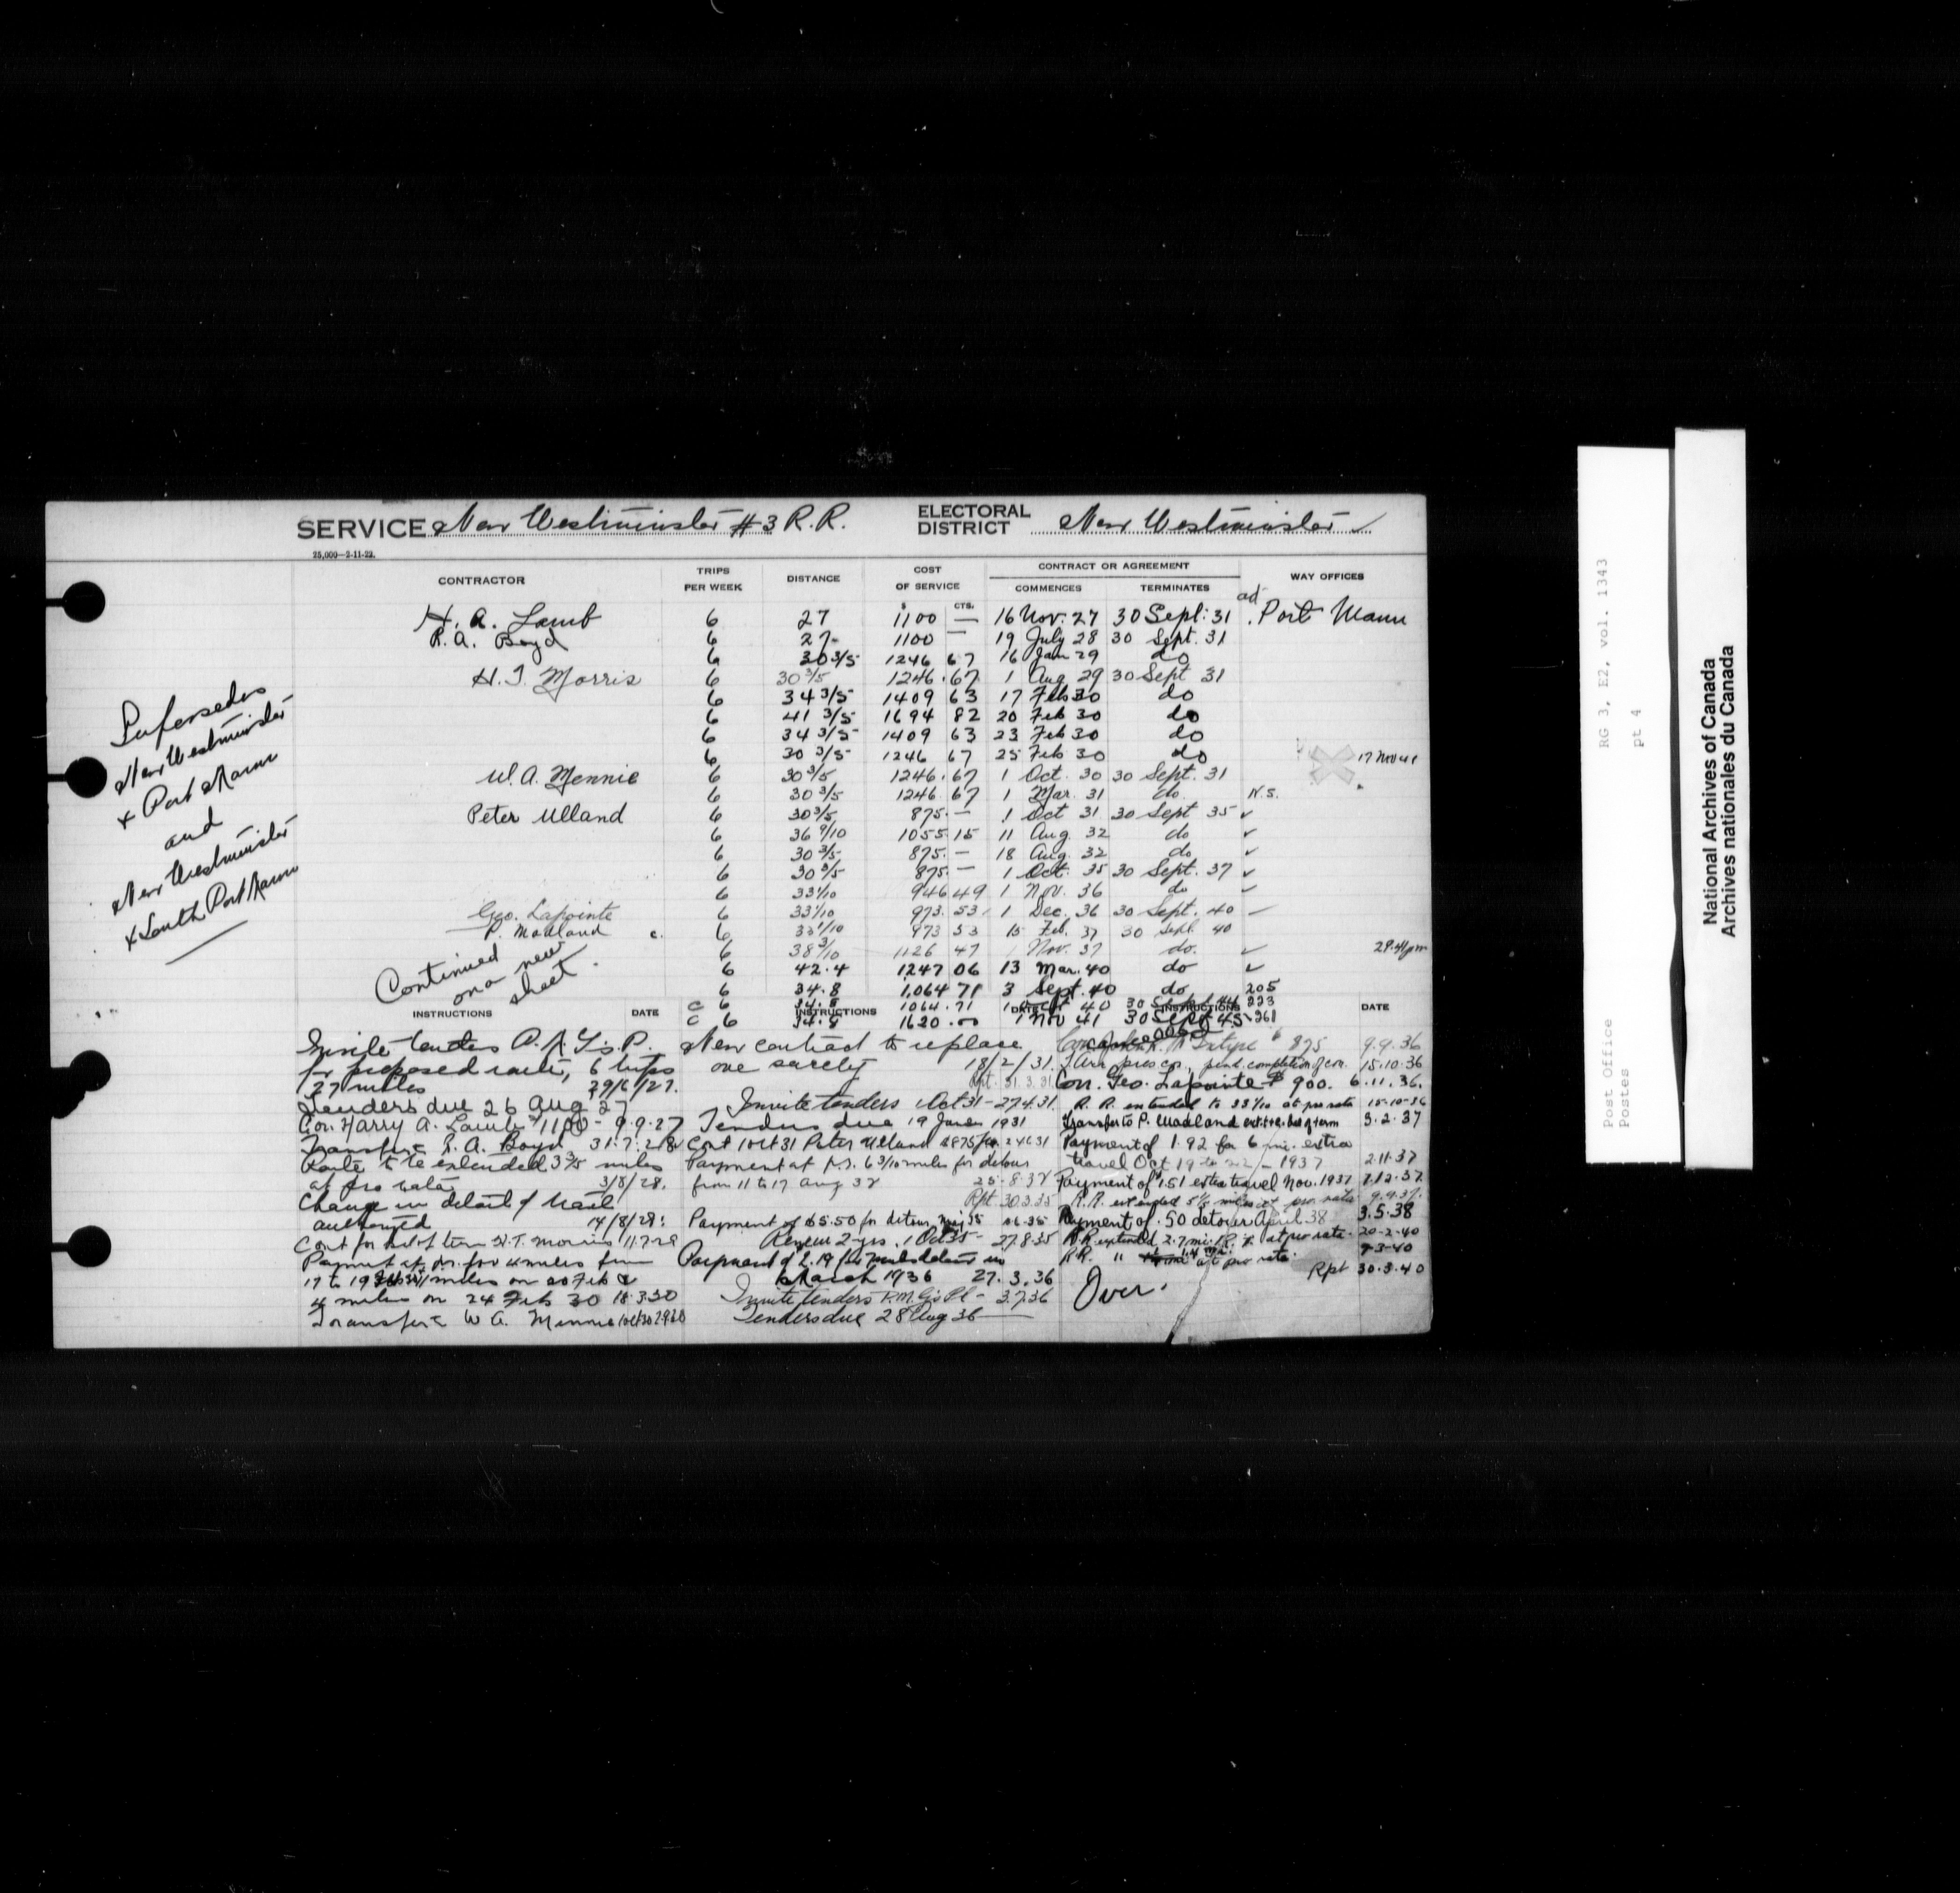 SERVICE New Westminster #3 R.R. ELECTORAL DISTRICT New Westminster ✓
25,000—2-11-22.
CONTRACTOR TRIPS PER WEEK DISTANCE COST OF SERVICE CONTRACT OR AGREEMENT COMMENCES TERMINATES WAY OFFICES
$ CTS.
H. A. Lamb 6 27 1100 — 16 Nov. 27 30 Sept. 31 ad. Port Mann
R. A. Boyd 6 27 1100 — 19 July 28 30 Sept. 31
6 30 3/5 1246 67 16 Jan 29 do
H. T. Morris 6 30 3/5 1246.67 1 Aug 29 30 Sept 31
6 34 3/5 1409 63 17 Feb 30 do
6 41 3/5 1694 82 20 Feb 30 do
6 34 3/5 1409 63 23 Feb 30 do
6 30 3/5 1246 67 25 Feb 30 do 17 Nov 41
W. A. Mennie 6 30 3/5 1246.67 1 Oct. 30 30 Sept. 31
6 30 3/5 1246.67 1 Mar. 31 do. N.S.
Peter Ulland 6 30 3/5 875.— 1 Oct 31 30 Sept 35 ✓
6 36 9/10 1055.15 11 Aug. 32 do ✓
6 30 3/5 875.— 18 Aug. 32 do ✓
6 30 3/5 875— 1 Oct. 35 30 Sept. 37 ✓
6 33 1/10 946 49 1 Nov. 36 do ✓
Geo. Lapointe 6 33 1/10 973.53 1 Dec. 36 30 Sept. 40 —
P. Madland c. 6 33 1/10 973 53 15 Feb. 37 30 Sept 40
6 38 3/10 1126 47 1 Nov. 37 do. ✓
6 42.4 1247 06 13 Mar. 40 do ✓
6 34.8 1,064 71 3 Sept. 40 do 205
c 6 34.8 1064.71 1 Oct 40 30 Sept 44 223
c 6 34.8 1620.00 1 Nov 41 30 Sept 45 261
Supersedes
New Westminster
& Port Mann
and
New Westminster
& South Port Mann
Continued
on a new
sheet.
INSTRUCTIONS DATE INSTRUCTIONS DATE INSTRUCTIONS DATE
Invite tenders
for proposed route, 6 trips
27 miles 29/6/27.
Tenders due 26 Aug 27
Con. Harry A. Lamb $1100 - 9-9-27
Transfer R. A. Boyd 31.7.28
Route to be extended 3 3/5 miles
at pro rata 3/8/28.
Change in detail of
authorized 14/8/28.
Cont for bal of term H. T. Morris
Payment at p.r. for 4 miles from
17 to 19 miles on 20 Feb &
4 miles on 24 Feb 30 18.3.30
Transfer W A. Mennie
New contract to replace
one surety 18/2/31.
Rpt. 31.3.31
Invite tenders 1 Oct 31 - 27.4.31.
Tenders due 19 June 1931
Cont 1 Oct 31 Peter Ulland $875 24631
Payment at p.r. 6 3/10 miles for detour
from 11 to 17 Aug 32 25.8.32
Rpt. 30.3.35
Payment of $5.50 for detour May 35
Renew 2 yrs. 1 Oct 35 - 27.8.35
Payment of 2.19 for detour in
March 1936 27.3.36
Invite tenders P.M.G's Pl - 3.7.36
Tenders due 28 Aug 36
$ 875 9.9.36
Arr pres con, pend. completion of con. 15.10.36
Con. Geo. Lapointe $ 900. 6.11.36.
R. R. extended to 33 1/10 at pro rata 15-10-36
Transfer to P. Madland bal of term 3.2.37
Payment of 1.92 for 6 mi. extra
travel Oct 19 to 22 - 1937 2.11.37
Payment of $1.51 extra travel Nov. 1937 7.12.37.
R.R. extended 5 1/5 miles at pro rata 9.9.37.
Payment of .50 detour April 38 3.5.38
R.R. extended 2.7 mi. at pro rata. 20-2-40
R.R. " 1.4 mi. at pro rata. 7-3-40
Rpt 30.3.40
Over.
Post Office RG 3, E2, vol. 1343
Postes pt 4
National Archives of Canada
Archives nationales du Canada